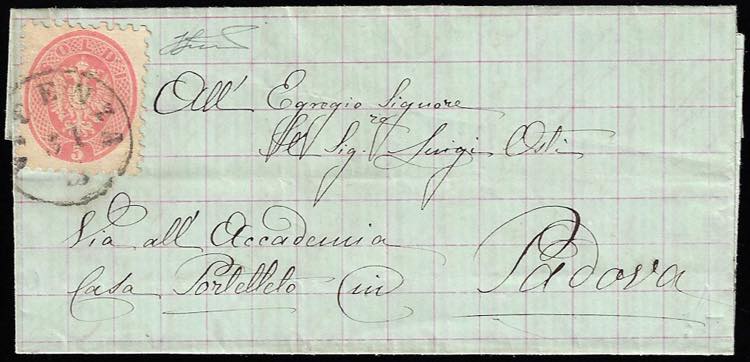 SOLDI
5
VICENZA
All' Egregio Signore
Il Sig.re Luigi Osti
Via all' Accademia
Casa Portelleto in Padova